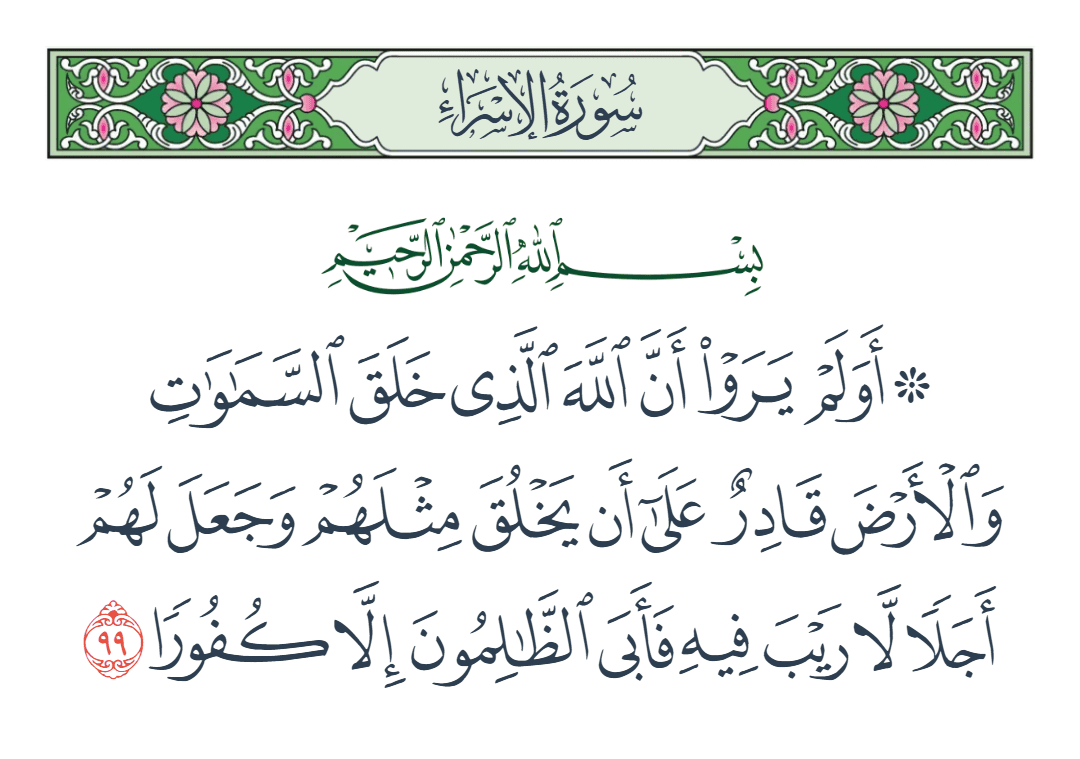 سُورَةُ الإِسْرَاءِ
بِسْمِ ٱللَّهِ ٱلرَّحْمَٰنِ ٱلرَّحِيمِ
۞ أَوَلَمْ يَرَوْا۟ أَنَّ ٱللَّهَ ٱلَّذِى خَلَقَ ٱلسَّمَـٰوَٰتِ
وَٱلْأَرْضَ قَادِرٌ عَلَىٰٓ أَن يَخْلُقَ مِثْلَهُمْ وَجَعَلَ لَهُمْ
أَجَلًا لَّا رَيْبَ فِيهِ فَأَبَى ٱلظَّـٰلِمُونَ إِلَّا كُفُورًا ٩٩